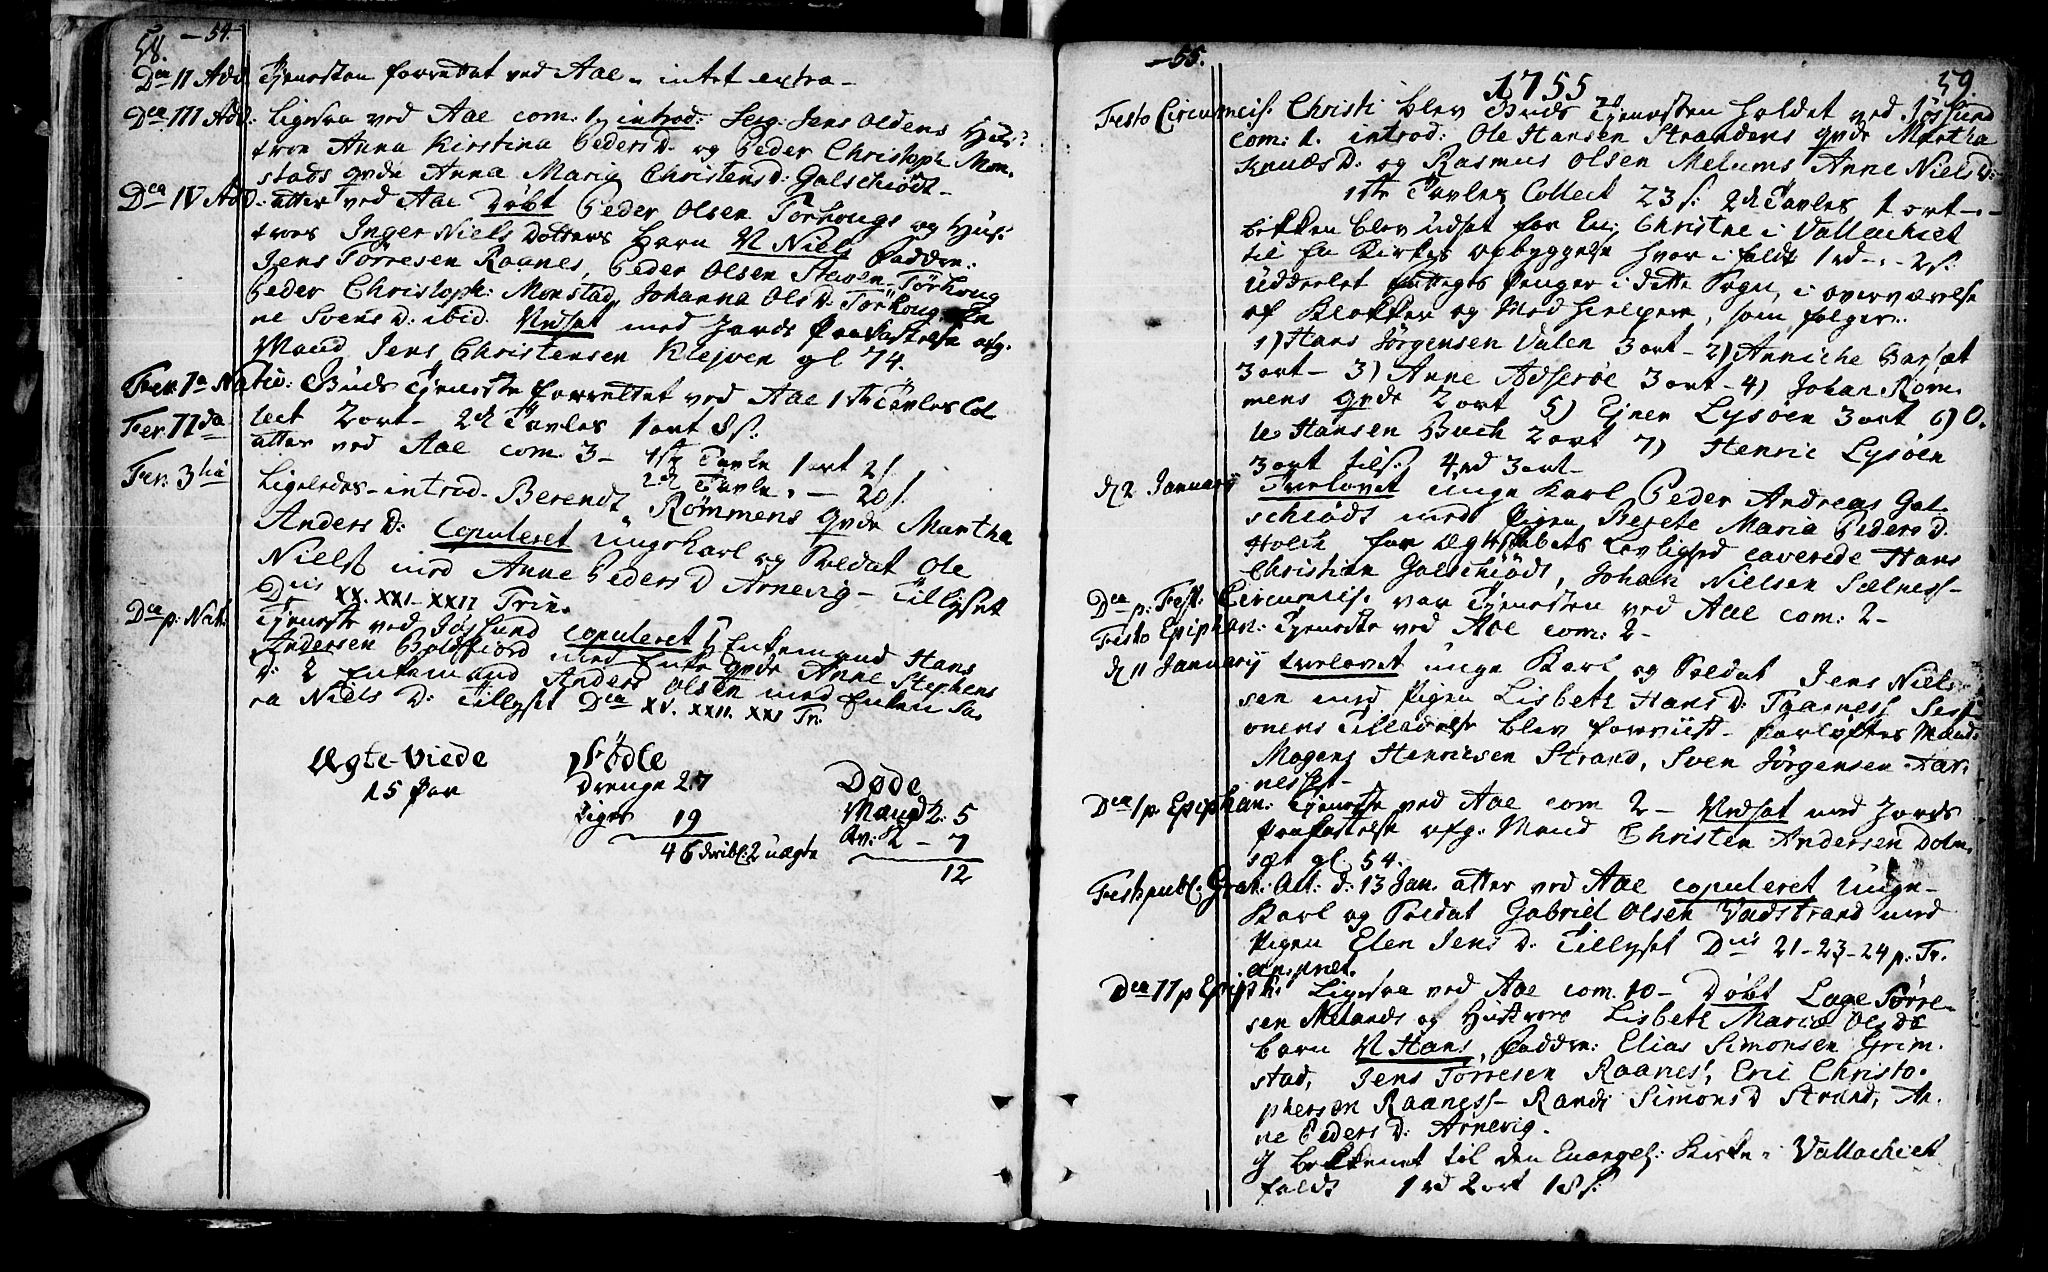 58. — 54.
Dca II Adv. Tjenesten forrettet ved Aae — intet extra —
Dca III Adv: Ligesaa ved Aae com. 12 introd: Serg: Jens Oldens Hus:
troe Anna Kirstina Peders D. og Peder Christoph: Mon-
stads qvde Anna Maria Christens D: Galschiødt —
Dca IV Adv: atter ved Aae Døbt Peder Olsen Tørhougs og Hus:
troes Inger Niels Dotters barn N Niels Faddere:
Jens Tørresen Raanes, Peder Olsen Tørhoug
Peder Christoph: Monstad, Johanna Ols D: Tørhoug
ne Svens D: ibid. Nedsat med Jords Paakastelse afg.
Mand Jens Christensen Klejven gl 74.
Fer. 1a Nativ: Guds Tjeneste forrettet ved Aae 1ste Tavles Col-
lect 2 ort — 2den Tavles 1 ort 8 s:
Fer. IIda atter ved Aae com. 3 — 1ste Tavle 1 ort 2 s.
2den Tavle — 20 s.
Fer. 3tia Ligeledes — introd. Berendt Rømmens qvde Martha
Anders D: Copuleret ungekarl og Soldat Ole
Niels: med Anne Peders D Arnevig — Tillyset
Dnis XX. XXI — XXII Trin.
Dca p: Nat: Tjeneste ved Jøssund copuleret 1) Enkemand Hans
Andersen Boldfiord med Enke qvde Anne Stephens
D: 2 Enkemand Anders Olsen med Enken Sa-
ra Niels D: Tillyset Dca XX. XXII. XXI Tr:
Ægte-Viede
15 Par
Fødte
Drenge 27
Piger 19
46 deribl: 2 uægte
Døde
Mænd 5
Qv: 7
12
— 55.
1755
59.
Festo Circumcis: Christi blev Guds Tjenesten holdet ved Jøssund
com: 1. introd: Ole Hansen Strandens qvde Martha
Knuds D: og Rasmus Olsen Melums Anne Niels D:
1ste Tavles Collect 23 s: 2den Tavles 1 ort —
bekken blev udsat for En: Christne i Vallachiet
til en Kirkes opbyggelse hvor i faldt 1 rd — 2 s:
Uddeelet fattiges Penger i dette Sogn, i overværelse
af Klokker og Medhielpere, som følger:
1) Hans Jørgensen Valen 3 ort — 2) Anniche
3 ort — 3) Anne Adserøe 3 ort — 4) Johan Røm-
mens qvde 2 ort 5) Ejner Lysøen 3 ort 6) O-
le Hansen Buch 2 ort 7) Henric Lysøen
3 ort tils: 4 rd 3 ort —
d 2 January Trolovet unge Karl Peder Andreas Gal-
schiødt med Pigen Berete Maria Peders D.
Holch for Ægteskabets Lovlighed caverede Hans
Christian Galschiødt, Johan Nielsen Selness —
Dca p: Fest: Circumcis: var Tjenesten ved Aae com: 2 —
Festo Epiphan: Tjeneste ved Aae com: 2 —
d 11 January trolovet unge Karl og Soldat Jens Niel-
sen med Pigen Lisbeth Hans D:
onens Tilladelse blev foreviist — forløftes Mænd:
Mogens Henricsen Strand, Sven Jørgensen Tar-
nesset —
Dca 1 p: Epiphan: Tjeneste ved Aae com 2 — Nedsat med Jords
Paakastelse afg: Mand Christen Andersen Dolm-
set gl. 54.
Fest publ: Grat: Act: d: 13 Jan. atter ved Aae copuleret Unge-
Karl og Soldat Gabriel Olsen Vadstrand med
Pigen Elen Jens D: Tillyset Dnis 21 — 23 — 24 p: Tr.
an: præt.
Dca II p Epiph: Ligesaa ved Aae com. 10 — Døbt Lage Tørre-
sen Melands og Hustroes Lisbeth Maria Ols Ds
barn N Hans, Faddere: Elias Simonsen Grim-
stad, Jens Tørresen Raaness, Eric Christo-
phersen Raaness — Randi Simons D Strand, An-
ne Peders D: Arnevig.
J bekkenet til den Evangel: Kirke i Vallachiet
faldt 1 rd 2 ort 18 s: